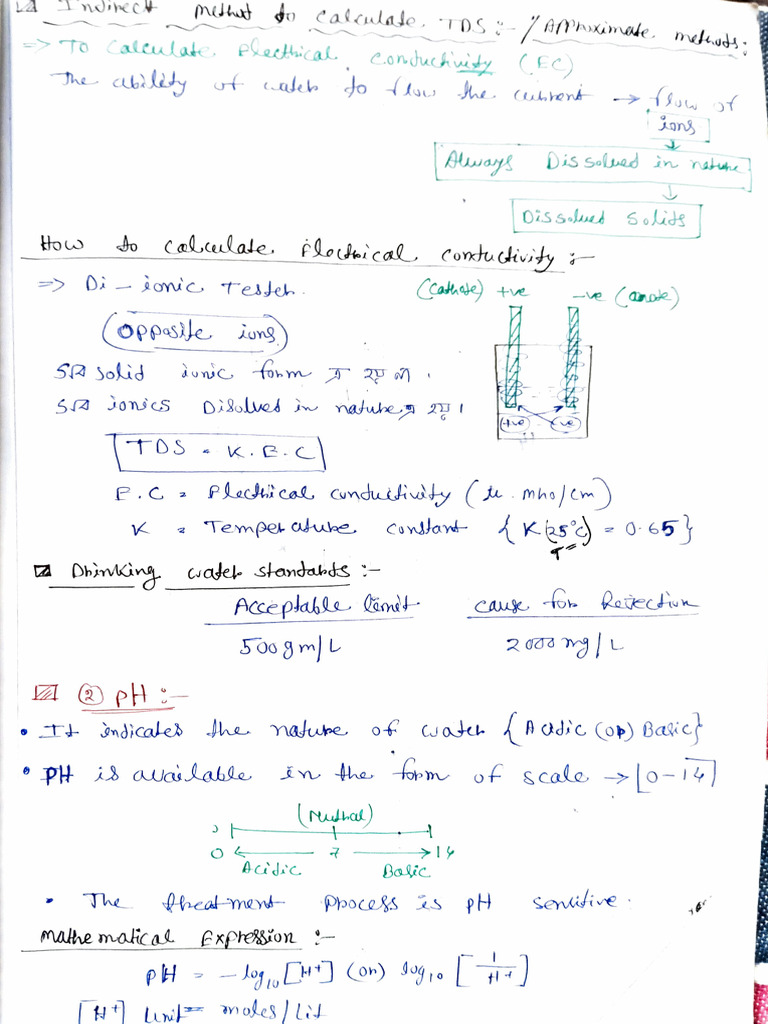 Indirect Method to calculate TDS :- / Approximate methods:
=> To calculate Electrical Conductivity (EC)
The ability of water to flow the current → flow of
ions
↓
Always Dissolved in nature
↓
Dissolved Solids
How to calculate Electrical conductivity :-
=> Di-ionic Tester.
(Cathode) +ve -ve (anode)
(Opposite ions)
solid ionic form
ionics Disolved in nature
+ve -ve
TDS = K.E.C
E.C = Electrical conductivity (μ.mho/cm)
K = Temperature constant {K(25°C) = 0.65}
T=
Drinking water standards :-
Acceptable limit cause for Rejection
500gm/L 2000mg/L
② pH :-
• It indicates the nature of water {Acidic (or) Basic}
• PH is available in the form of scale → [0-14]
(Nuthal)
0 ← 7 → 14
Acidic Basic
• The threatment process is pH senstive.
Mathematical Expression :-
pH = -log10 [H+] (or) log10 [1/H+]
[H+] Unit = moles/Lit